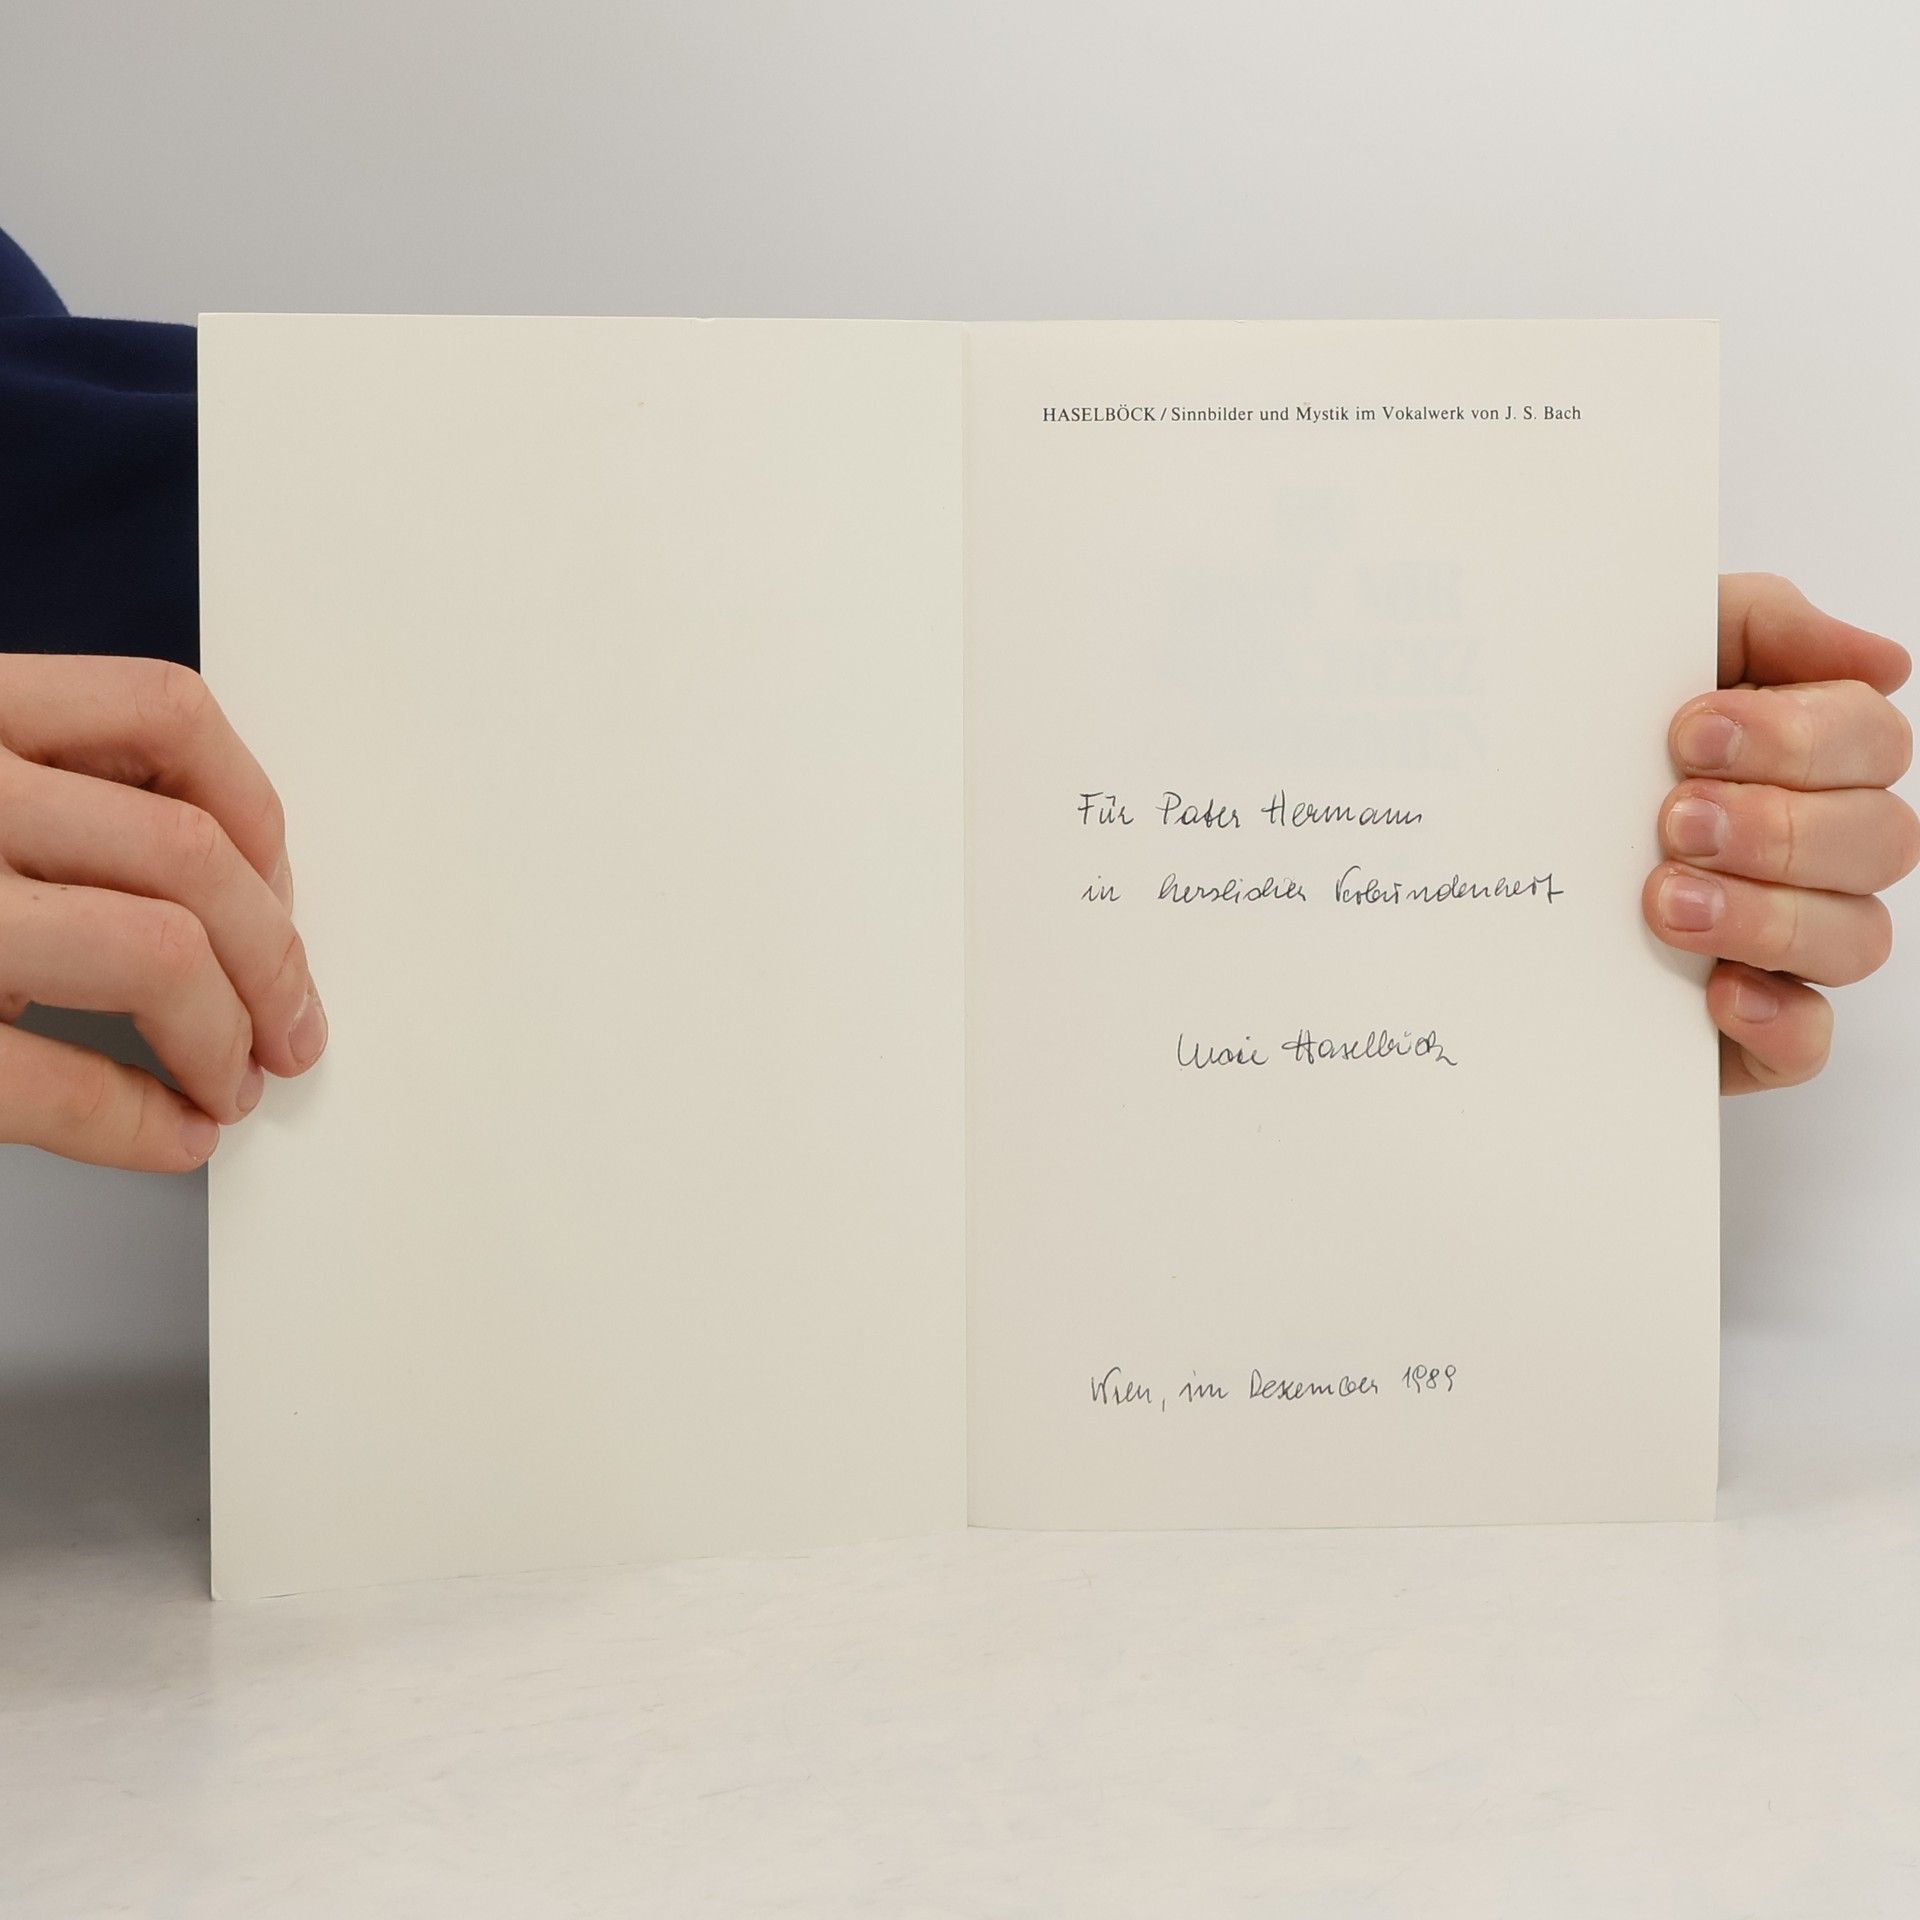 HASELBÖCK / Sinnbilder und Mystik im Vokalwerk von J. S. Bach
Für Pater Hermann
in herzlicher Verbundenheit
Haselböck
Wien, im Dezember 1989